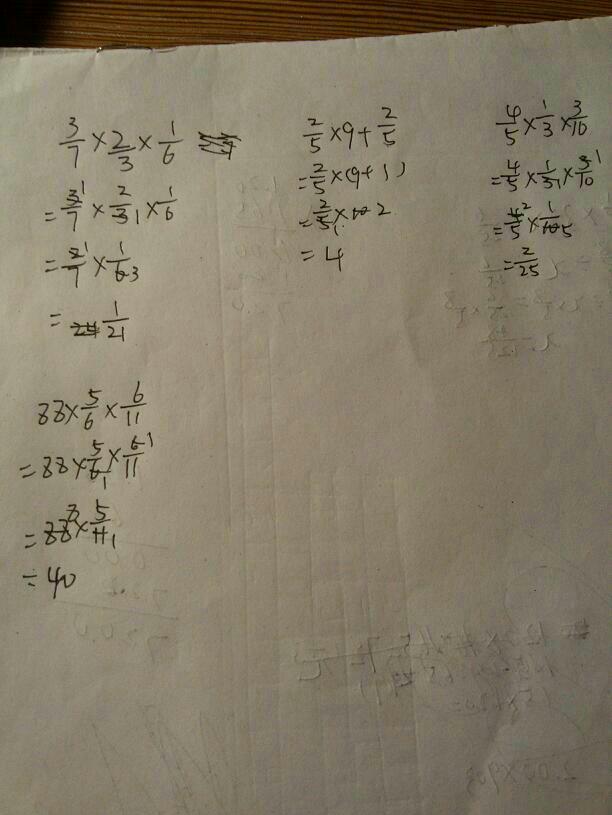 3/7 × 2/3 × 1/6
= 3/7 × 2/3 × 1/6
= 2/7 × 1/6
= 1/21
2/5 × 9 + 2/5
= 2/5 × (9 + 1)
= 2/5 × 10
= 4
4/5 × 1/3 × 3/10
= 4/5 × 1/3 × 3/10
= 4/5 × 1/10
= 2/25
88 × 5/6 × 6/11
= 88 × 5/6 × 6/11
= 88 × 5/11
= 40